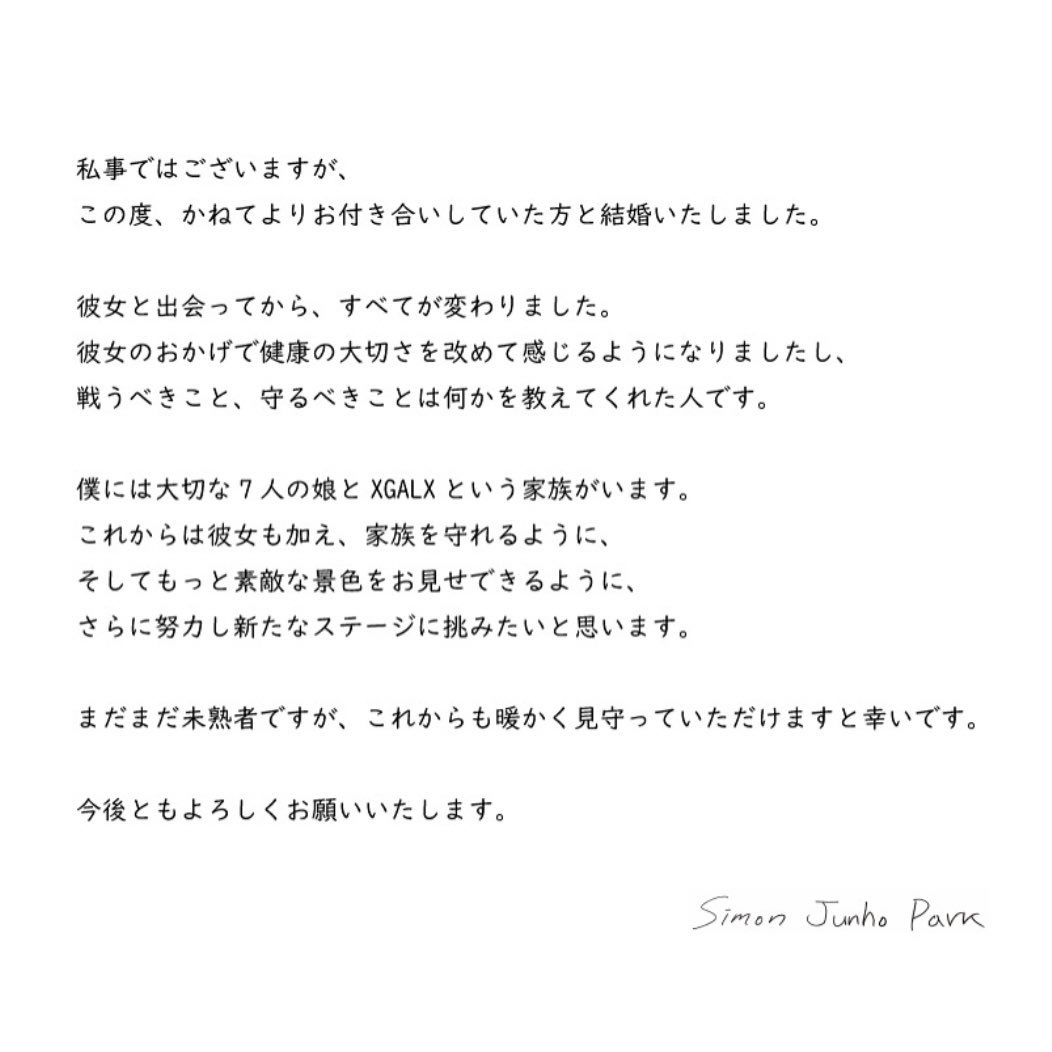 私事ではございますが、
この度、かねてよりお付き合いしていた方と結婚いたしました。
彼女と出会ってから、すべてが変わりました。
彼女のおかげで健康の大切さを改めて感じるようになりましたし、
戦うべきこと、守るべきことは何かを教えてくれた人です。
僕には大切な7人の娘とXGALXという家族がいます。
これからは彼女も加え、家族を守れるように、
そしてもっと素敵な景色をお見せできるように、
さらに努力し新たなステージに挑みたいと思います。
まだまだ未熟者ですが、これからも暖かく見守っていただけますと幸いです。
今後ともよろしくお願いいたします。
Simon Junho Park